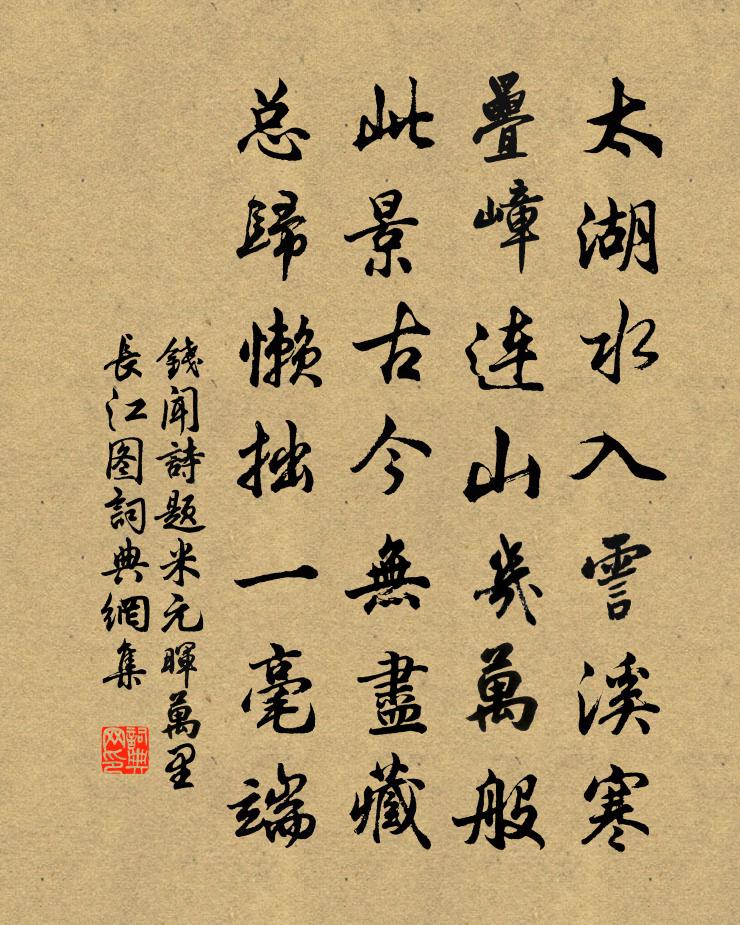 太湖水入霅溪寒
疊嶂連山幾萬般
此景古今無盡藏
总歸懶拙一毫端
錢聞詩題米元暉萬里
長江图詞典網集
詞典网印